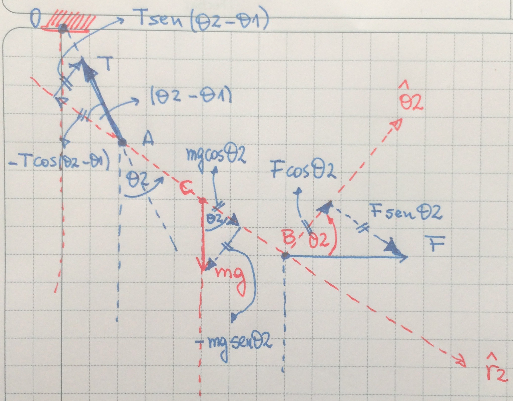 O
Tsen(θ2-θ1)
T
(θ2-θ1)
A
-Tcos(θ2-θ1)
θ2
mgcosθ2
G
θ2
mg
-mgsenθ2
θ̂2
Fcosθ2
Fsenθ2
B
θ2
F
r̂2